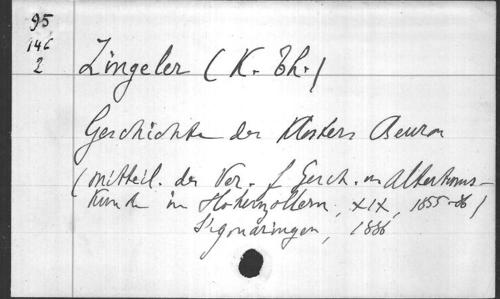 95
146
2
Zingeler (K. Th.)
Geschichte des Klosters Beuron
(Mitteil. des Ver. f. Gesch. u. Altertums-
kunde in Hohenzollern, XIX, 1885-86)
Sigmaringen, 1886